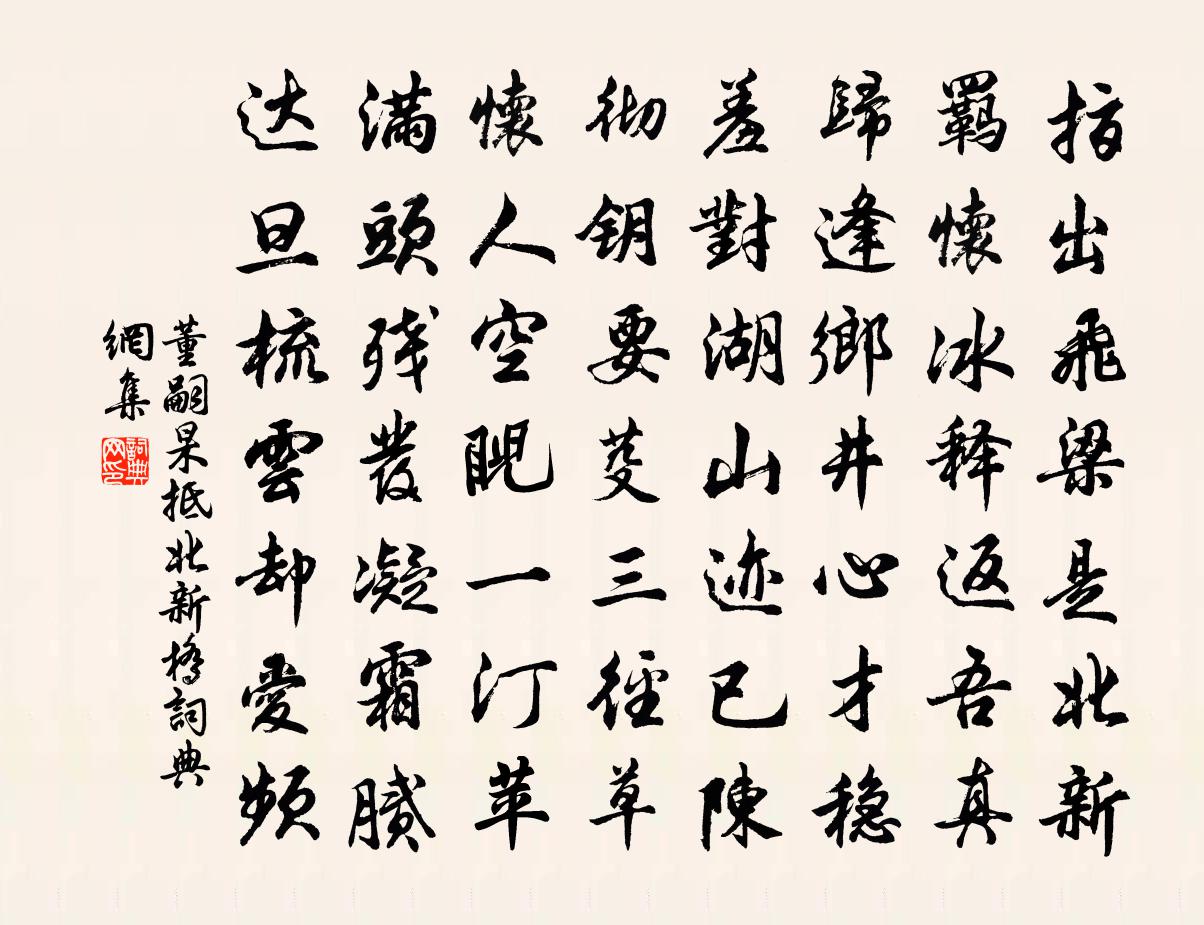 指出飛梁是北新
羈懷冰释返吾真
歸逢鄉井心才稳
羞對湖山迹已陳
彻钥要芟三徑草
懷人空睨一汀苹
滿頭残發凝霜腻
达旦梳雲却愛頻
董嗣杲抵北新橋詞典
網集
詞典
网印